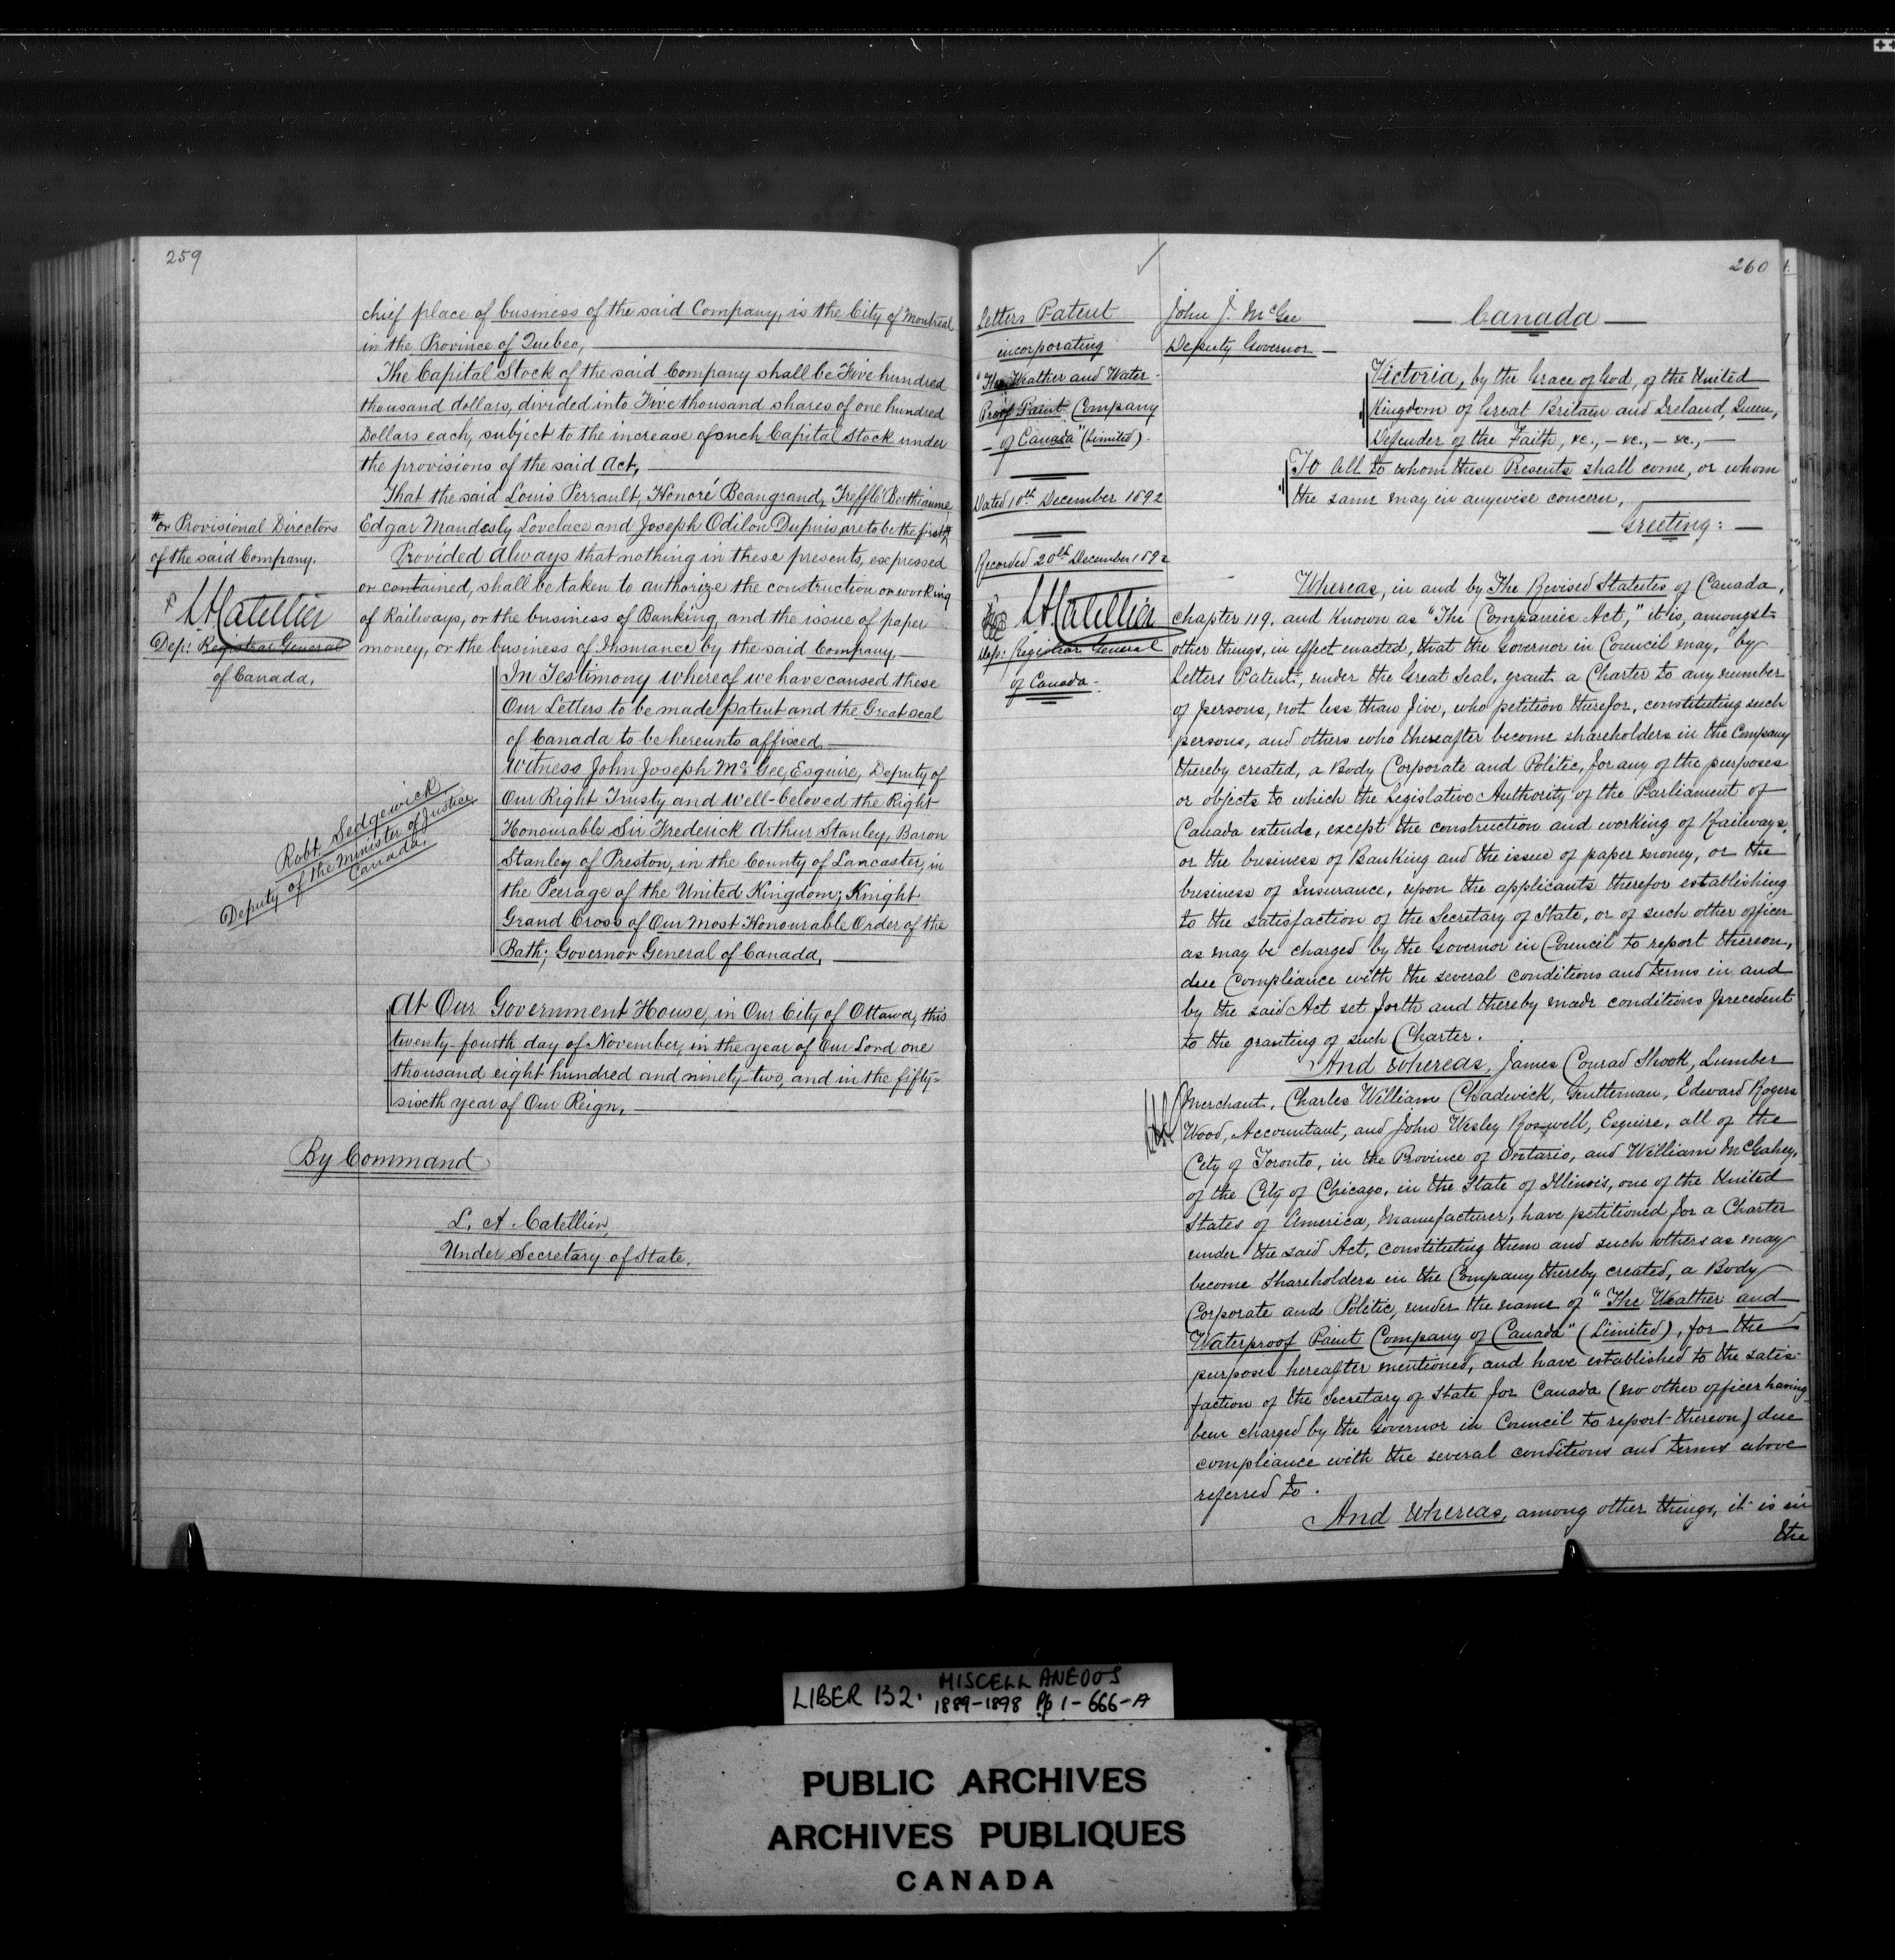 259
chief place of business of the said Company, is the City of Montreal
in the Province of Quebec,
The Capital Stock of the said Company shall be Five hundred
thousand dollars, divided into Five thousand shares of one hundred
Dollars each, subject to the increase of such Capital Stock under
the provisions of the said Act,
That the said Louis Perrault, Honoré Beaugrand, Trefflé Berthiaume
Edgar Maudesly Lovelace and Joseph Odilon Dupuis are to be the first #
# or Provisional Directors
of the said Company.
LACatellier
Dep: Registrar General
of Canada,
Provided always that nothing in these presents, expressed
or contained, shall be taken to authorize the construction or working
of Railways, or the business of Banking, and the issue of paper
money, or the business of Insurance by the said Company,
In Testimony whereof we have caused these
Our Letters to be made patent and the Great seal
of Canada to be hereunto affixed,
Witness John Joseph Mc Gee, Esquire, Deputy of
Our Right Trusty and well-beloved the Right
Honourable Sir Frederick Arthur Stanley, Baron
Stanley of Preston, in the County of Lancaster, in
the Peerage of the United Kingdom; Knight
Grand Cross of Our Most Honourable Order of the
Bath; Governor General of Canada,
Robt. Sedgewick
Deputy of the Minister of Justice
Canada,
At Our Government House, in Our City of Ottawa, this
twenty-fourth day of November, in the year of Our Lord one
thousand eight hundred and ninety-two, and in the fifty=
sixth year of Our Reign,
By Command
L. A. Catellier,
Under Secretary of State,
260
Letters Patent
incorporating
"The Weather and Water
Proof Paint Company
of Canada" (Limited).
Dated 10th December 1892
Recorded 20th December 1892
LACatellier
Dep: Registrar General
of Canada.
John J. McGee
Deputy Governor
Canada
Victoria, by the Grace of God, of the United
Kingdom of Great Britain and Ireland, Queen,
Defender of the Faith, &c., — &c., — &c., —
To all to whom these Presents shall come, or whom
the same may in anywise concern,
Greeting: —
Whereas, in and by The Revised Statutes of Canada,
chapter 119, and known as "The Companies Act," it is, amongst
other things, in effect enacted, that the Governor in Council may, by
Letters Patent, under the Great Seal, grant a Charter to any number
of persons, not less than five, who petition therefor, constituting such
persons, and others who thereafter become shareholders in the Company
thereby created, a Body Corporate and Politic, for any of the purposes
or objects to which the Legislative Authority of the Parliament of
Canada extends, except the construction and working of Railways,
or the business of Banking and the issue of paper money, or the
business of Insurance, upon the applicants therefor establishing
to the satisfaction of the Secretary of State, or of such other officer
as may be charged by the Governor in Council to report thereon,
due compliance with the several conditions and terms in and
by the said Act set forth and thereby made conditions precedent
to the granting of such Charter.
And whereas, James Conrad Shook, Lumber
Merchant, Charles William Chadwick, Gentleman, Edward Rogers
Wood, Accountant, and John Wesley Roswell, Esquire, all of the
City of Toronto, in the Province of Ontario, and William McGahey,
of the City of Chicago, in the State of Illinois, one of the United
States of America, Manufacturer, have petitioned for a Charter
under the said Act, constituting them and such others as may
become shareholders in the Company thereby created, a Body
Corporate and Politic, under the name of "The Weather and
Waterproof Paint Company of Canada" (Limited), for the
purposes hereafter mentioned, and have established to the satis-
faction of the Secretary of State for Canada (no other officer having
been charged by the Governor in Council to report thereon) due
compliance with the several conditions and terms above
referred to.
And whereas, among other things, it is in
the
LIBER 132. MISCELLANEOUS
1889-1898 Pp 1-666-A
PUBLIC ARCHIVES
ARCHIVES PUBLIQUES
CANADA